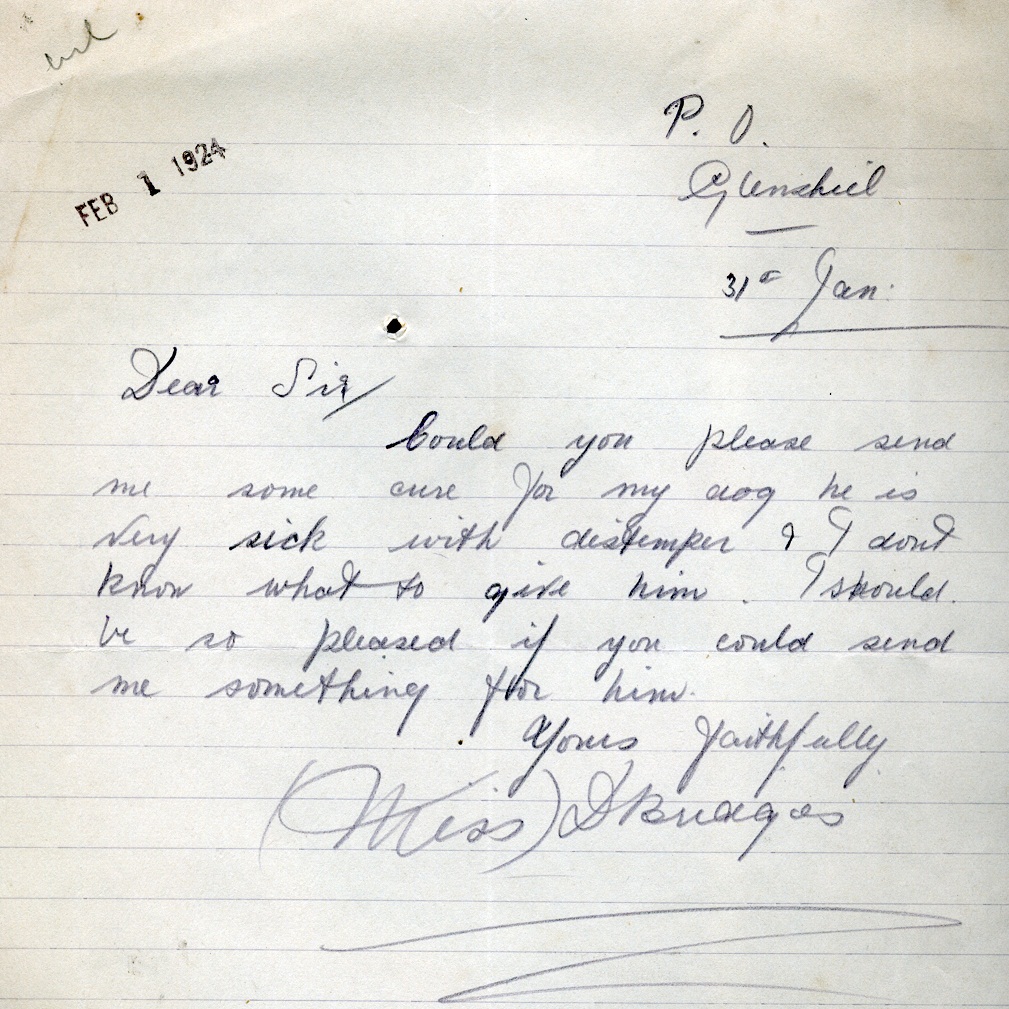 FEB 1 1924
P. O.
Glenshiel
31st Jan.
Dear Sir/
Could you please send
me some cure for my dog he is
very sick with distemper & I dont
know what to give him. I should
be so pleased if you could send
me something for him.
Yours faithfully
(Miss) D Bridges